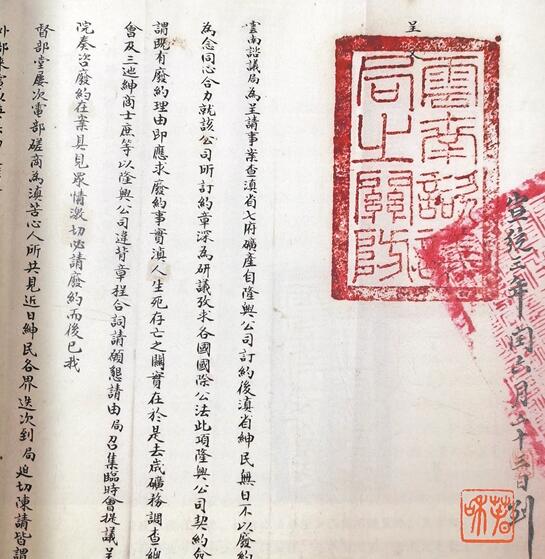 宣統三年閏六月二十三日到
呈
雲南諮議局之關防
雲南諮議局為呈請事案查滇省七府礦產自隆興公司訂約後滇省紳民無日不以廢約
為念同心合力就該公司所訂約章深為研議攷求各國國際公法此項隆興公司契約僉
謂既有廢約理由即應求廢約事實滇人生死存亡之關實在於是去歲礦務調查總
會及三迤紳商士庶等以隆興公司違背章程合詞請願懇請由局召集臨時會提議呈
院奏咨廢約在案具見眾情激切必請廢約而後已我
督部堂屢次電部磋商為滇苦心人所共見近日紳民各界迭次到局迫切陳請皆謂
外部來電以